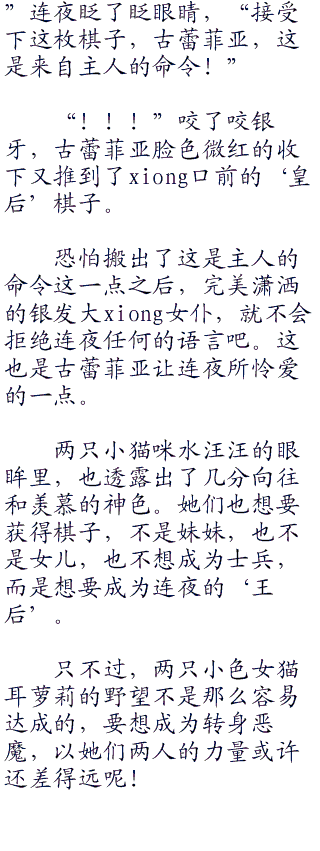 ”连夜眨了眨眼睛，“接受
下这枚棋子，古蕾菲亚，这
是来自主人的命令！”
“！！！”咬了咬银
牙，古蕾菲亚脸色微红的收
下又推到了xiong口前的‘皇
后’棋子。
恐怕搬出了这是主人的
命令这一点之后，完美潇洒
的银发大xiong女仆，就不会
拒绝连夜任何的语言吧。这
也是古蕾菲亚让连夜所怜爱
的一点。
两只小猫咪水汪汪的眼
眸里，也透露出了几分向往
和羡慕的神色。她们也想要
获得棋子，不是妹妹，也不
是女儿，也不想成为士兵，
而是想要成为连夜的‘王
后’。
只不过，两只小色女猫
耳萝莉的野望不是那么容易
达成的，要想成为转身恶
魔，以她们两人的力量或许
还差得远呢！